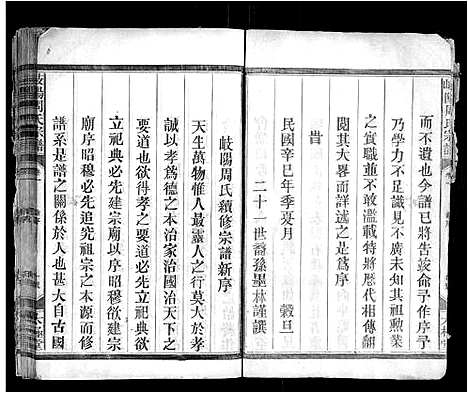 岐陽周氏宗譜
而不遺也今譜已將告竣命予作序予
乃學力不足識見不廣未知其祖勲業
之實職並不敢濫載特將歷代相傳翻
閱其大畧而詳述之是爲序
旹
民國辛巳年季夏月 穀旦
二十一世裔孫墨林謹譔
岐陽周氏續修宗譜新序
天生萬物惟人最靈人之行莫大於孝
誠以孝爲德之本治家治國治天下之
要道也欲得孝之要必先立祀典欲
立祀典必先建宗廟以序昭穆欲建宗
廟序昭穆必先追究祖宗之本源而修
譜系是譜之關係於人也甚大自古國
岐陽周氏宗譜